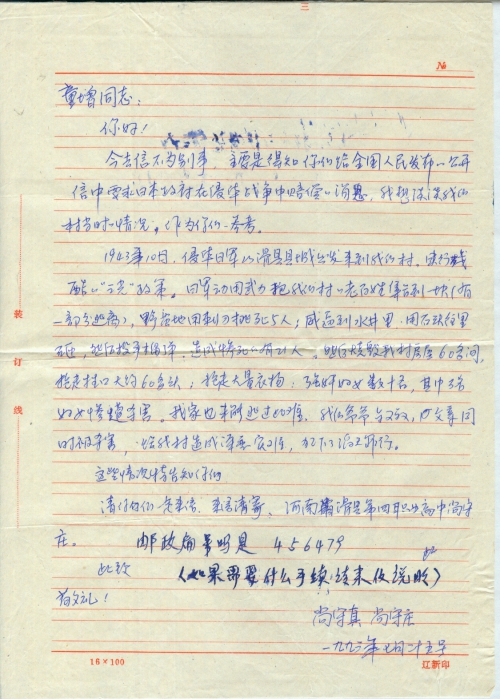 三
№
童增同志:
你好!
今去信不为别事 主要是得知你们给全国人民发布一公开
信中要求日本政府在侵华战争中赔偿的消息,我想谈谈我们
村当时的情况,作为你们参考。
1943年10月,侵华日军从滑县县城出发来到我们村,实行残
酷的"三光"政策。日军动用武力把我们村的老百姓集合到一块(有
一部分逃离),野蛮地用刺刀挑死5人;威逼到水井里,用石块往里
砸,然后投手榴弹,造成惨死的有21人。然后烧毁我村房屋60多间,
抢走牲口大约60多头;抢走大量衣物;强奸妇女数十名,其中3名
妇女惨遭杀害。我家也未能逃过此难,我的爷爷与父亲,父子二人同
时被杀害,给我村造成深重灾难,
这些情况特告知你们
请你们 来信,来信请寄,河南省滑县第四职业高中尚守
庄。 邮政编号码是 456479
此致
(如果需要什么手续,请来信说明)
敬礼!
尚守真 尚守庄
一九九三年七月二十五号
装
订
线
16×100
辽新印